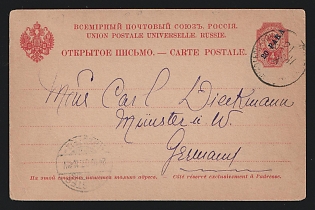 ВСЕМІРНЫЙ ПОЧТОВЫЙ СОЮЗЪ. РОССІЯ.
UNION POSTALE UNIVERSELLE. RUSSIE.
ОТКРЫТОЕ ПИСЬМО. — CARTE POSTALE.
Carl Dieckmann
Münster i. W.
Germany
На этой сторонѣ пишется только адресъ. Côté réservé exclusivement à l'adresse.